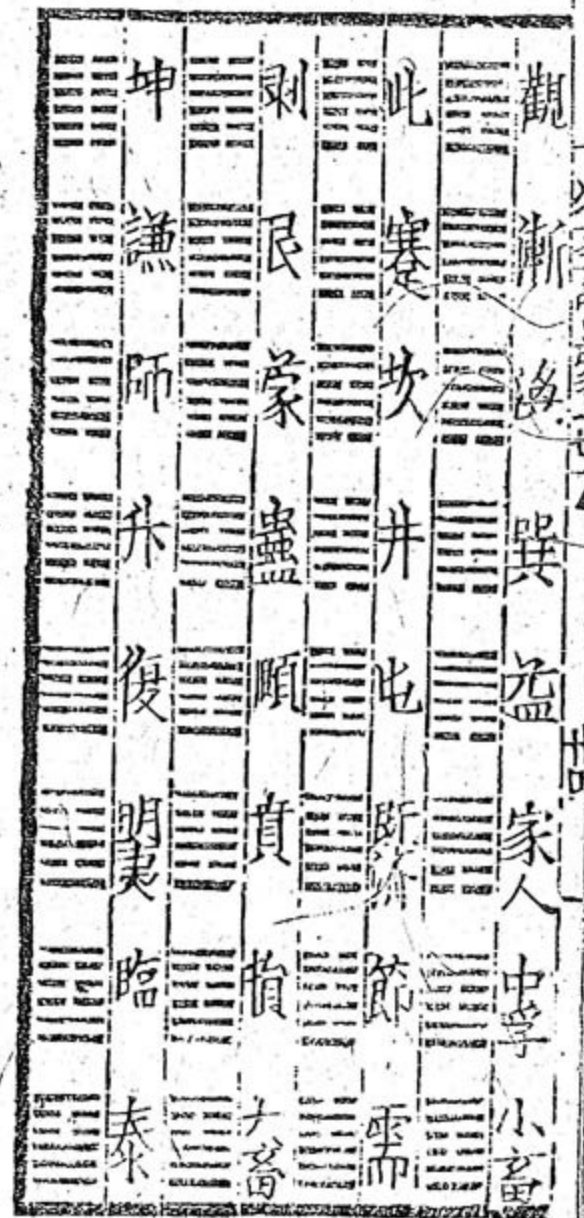 觀 漸 渙 巽 益 家人 中孚 小畜
此 蹇 坎 井 屯 既濟 節 需
剥 艮 蒙 蠱 頤 賁 損 大畜
坤 謙 師 升 復 明夷 臨 泰